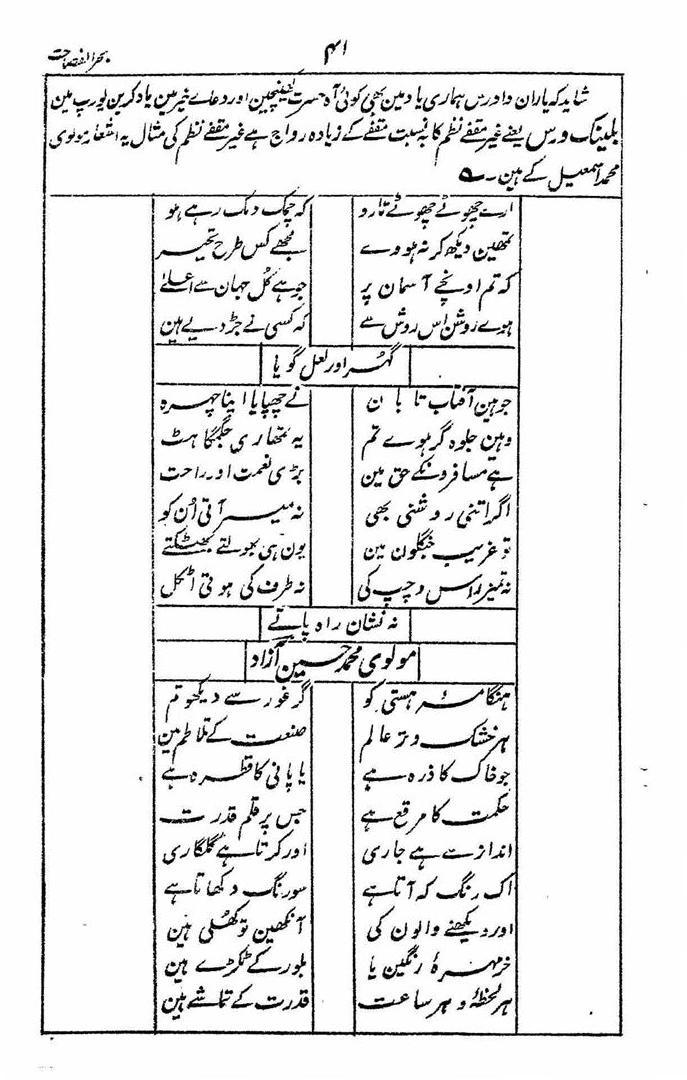 بحر الفصاحت
۴۱
شاید کہ یاران دادرس ہماری یاد مین بھی کوئی آہ حسرت کھینچین اور دعاے خیر مین یاد کرین یورپ مین
بلینک ورس یعنے غیر مقفے نظم کا بہ نسبت مقفے کے زیادہ رواج ہے غیر مقفے نظم کی مثال یہ اشعار مولوی
محمد اسمعیل کے ہین۔ ۵
ارے چھوٹے چھوٹے تارو کہ چمک دمک رہے ہو
تمھین دیکھ کر نہ ہووے مجھے کس طرح تحیر
کہ تم اونچے آسمان پر جو ہے کل جہان سے اعلےٰ
ہوے روشن اس روش سے کہ کسی نے جڑ دیے ہین
گہر اور لعل گویا
جوہین آفتاب تابان نے چھپایا اپنا چہرہ
وہین جلوہ گر ہوے تم یہ تمھاری جگمگاہٹ
ہے مسافرونکے حق مین بڑی نعمت اور راحت
اگر اتنی روشنی بھی نہ میسر آتی اُن کو
تو غریب جنگلون مین یون ہی بھولتے بھٹکتے
نہ تمیز راس و چپ کی نہ طرف کی ہوتی اٹکل
نہ نشان راہ پاتے
مولوی محمد حسین آزاد
ہنگامۂ ہستی کو گر غور سے دیکھو تم
ہر خشک و تر عالم صنعت کے تلاطم مین
جو خاک کا ذرہ ہے یا پانی کا قطرہ ہے
حکمت کا مرقع ہے جس پر قلم قدرت
انداز سے ہے جاری اور کرتا ہے گلکاری
اک رنگ کہ آتا ہے سو رنگ دکھاتا ہے
اور دیکھنے والون کی آنکھین تو کھلی ہین
خرمہرۂ رنگین یا بلور کے ٹکڑے ہین
ہر لحظہ و ہر ساعت قدرت کے تماشے ہین